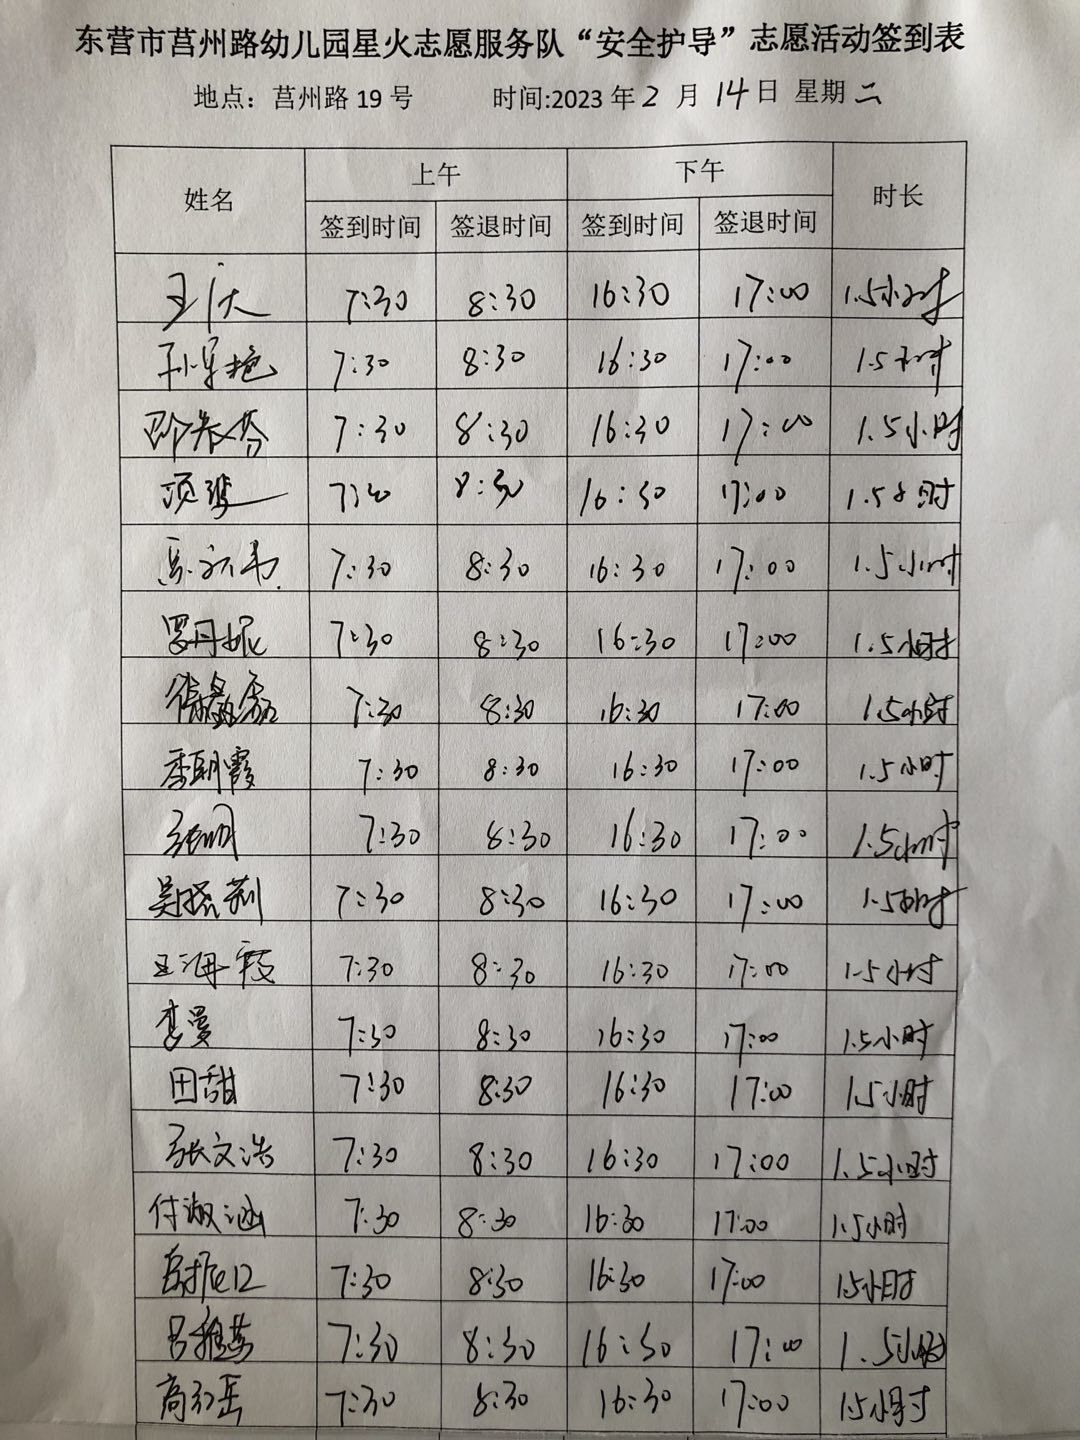 东营市莒州路幼儿园星火志愿服务队“安全护导”志愿活动签到表
地点：莒州路19号 时间:2023年2月14日 星期二
姓名 上午 下午 时长
签到时间 签退时间 签到时间 签退时间
7:30 8:30 16:30 17:00 1.5小时
孙军艳 7:30 8:30 16:30 17:00 1.5小时
7:30 8:30 16:30 17:00 1.5小时
项 7:30 8:30 16:30 17:00 1.5小时
7:30 8:30 16:30 17:00 1.5小时
罗丹妮 7:30 8:30 16:30 17:00 1.5小时
7:30 8:30 16:30 17:00 1.5小时
季朝霞 7:30 8:30 16:30 17:00 1.5小时
张明 7:30 8:30 16:30 17:00 1.5小时
吴晓莉 7:30 8:30 16:30 17:00 1.5小时
王海霞 7:30 8:30 16:30 17:00 1.5小时
李曼 7:30 8:30 16:30 17:00 1.5小时
田甜 7:30 8:30 16:30 17:00 1.5小时
张文浩 7:30 8:30 16:30 17:00 1.5小时
付淑涵 7:30 8:30 16:30 17:00 1.5小时
7:30 8:30 16:30 17:00 1.5小时
吕雅茹 7:30 8:30 16:30 17:00 1.5小时
高红岳 7:30 8:30 16:30 17:00 1.5小时